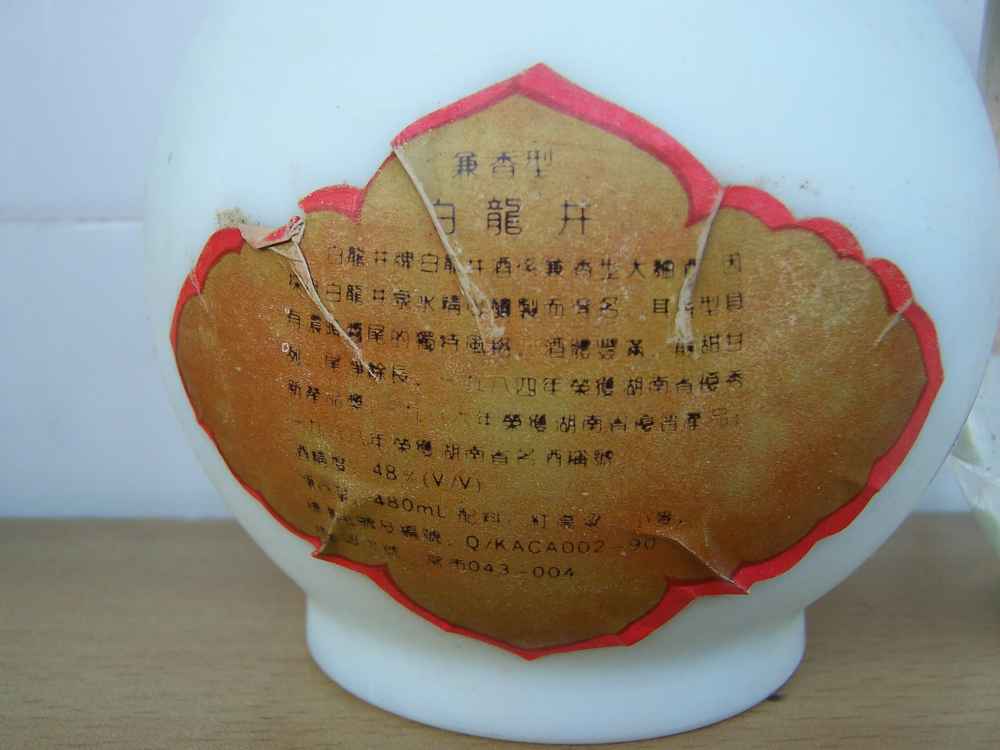 兼香型
白龍井
白龍井牌白龍井酒係兼香型大麯酒 因
白龍井泉水精心釀製而得名 型具
有濃頭醬尾的獨特風格 酒體豐滿 甜甘
冽 尾淨餘長 一九八四年榮獲湖南省優秀
新 獎 年榮獲湖南省優質產品
一九八八年榮獲湖南省名酒稱號
酒精度 48%(V/V)
480mL 配料 紅高粱 小麥
標 號及編號 Q/KACA002-90
043-004